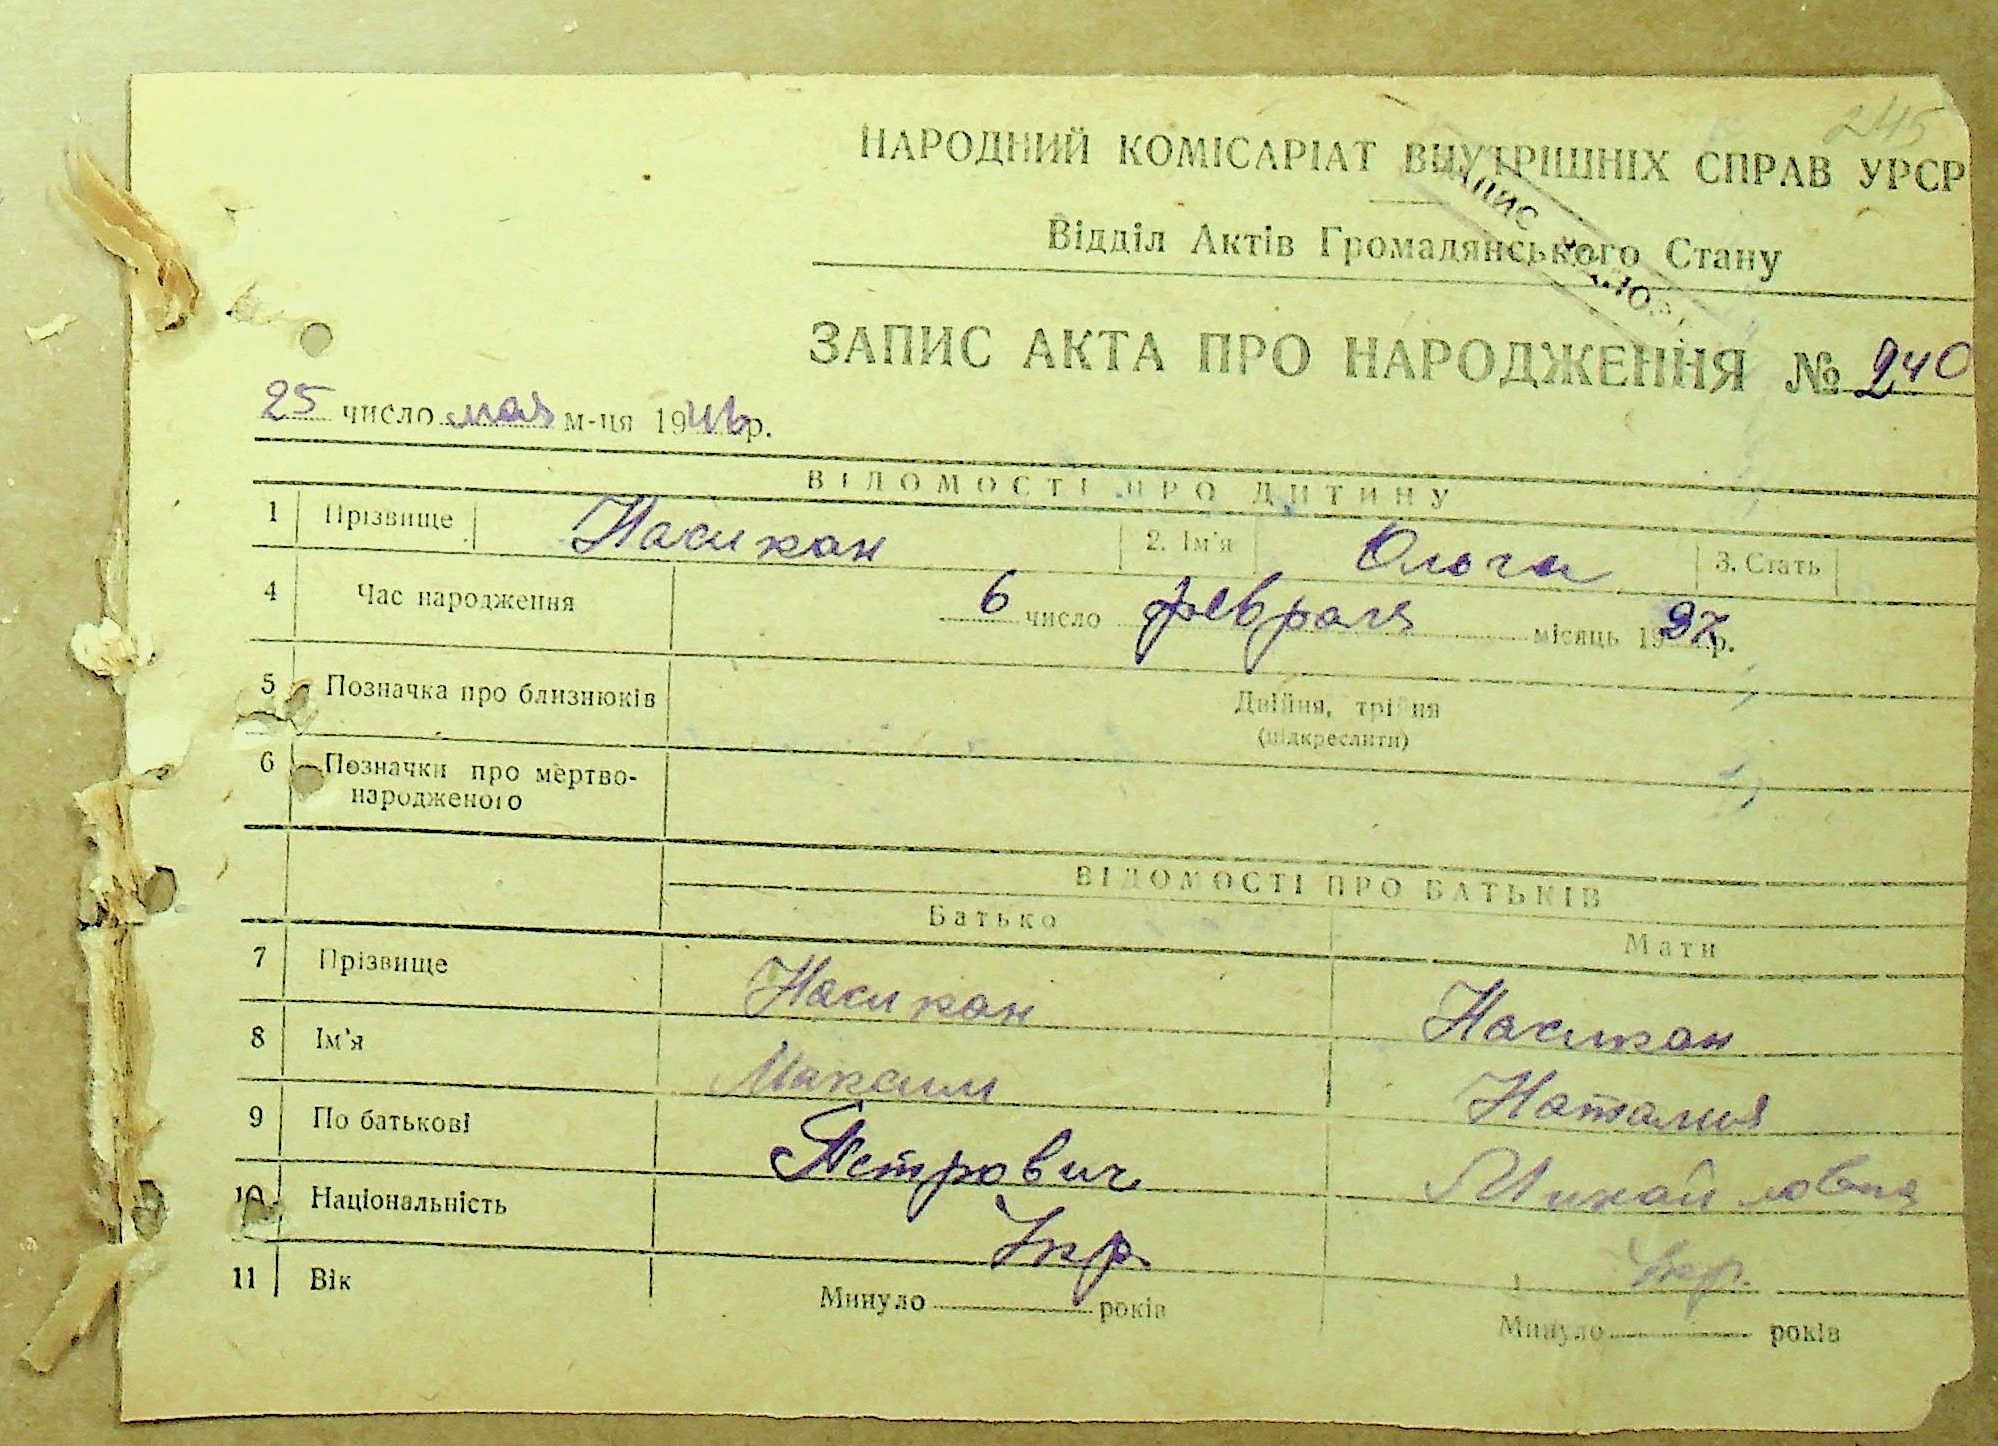 245
НАРОДНИЙ КОМІСАРІАТ ВНУТРІШНІХ СПРАВ УРСР
Відділ Актів Громадянського Стану
ЗАПИС
ЗАПИС АКТА ПРО НАРОДЖЕННЯ № 240
25 число мая м-ця 1946 р.
ВІДОМОСТІ ПРО ДИТИНУ
1 Прізвище Насикан 2. Ім'я Ольга 3. Стать
4 Час народження 6 число февраля місяць 1937 р.
5 Позначка про близнюків Двійня, трійня
(підкреслити)
6 Позначки про мертво-
народженого
ВІДОМОСТІ ПРО БАТЬКІВ
Батько Мати
7 Прізвище Насикан Насикан
8 Ім'я Максим Наталия
9 По батькові Петрович Михайловна
10 Національність Укр. Укр.
11 Вік Минуло років Минуло років